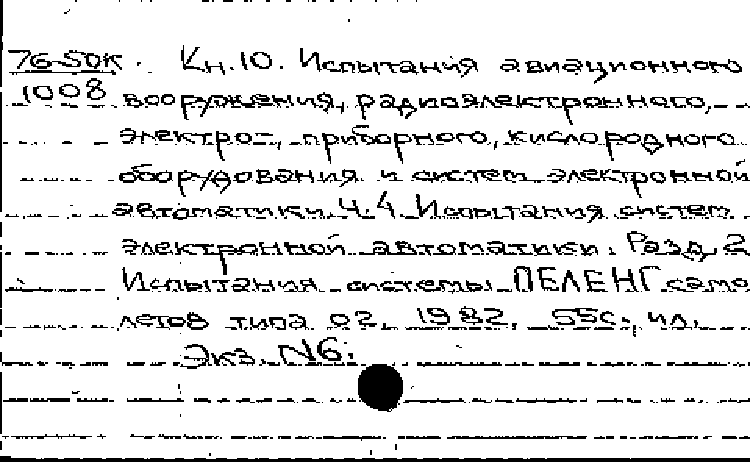 76-50К. Кн.10. Испытания авиационного
1008 вооружения, радиоэлектронного,
электро-, приборного, кислородного
оборудования и систем электронной
автоматики. Ч.4. Испытания систем
электронной автоматики. Разд. 2
Испытания системы ПЕЛЕНГ само
летов типа 02. 1982. 55с., ил.
Экз. N6.